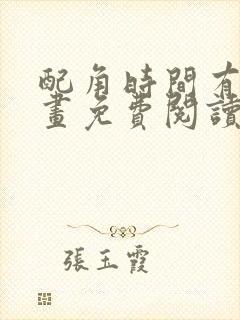 配角時間有
畫免費閱讀
張玉霞